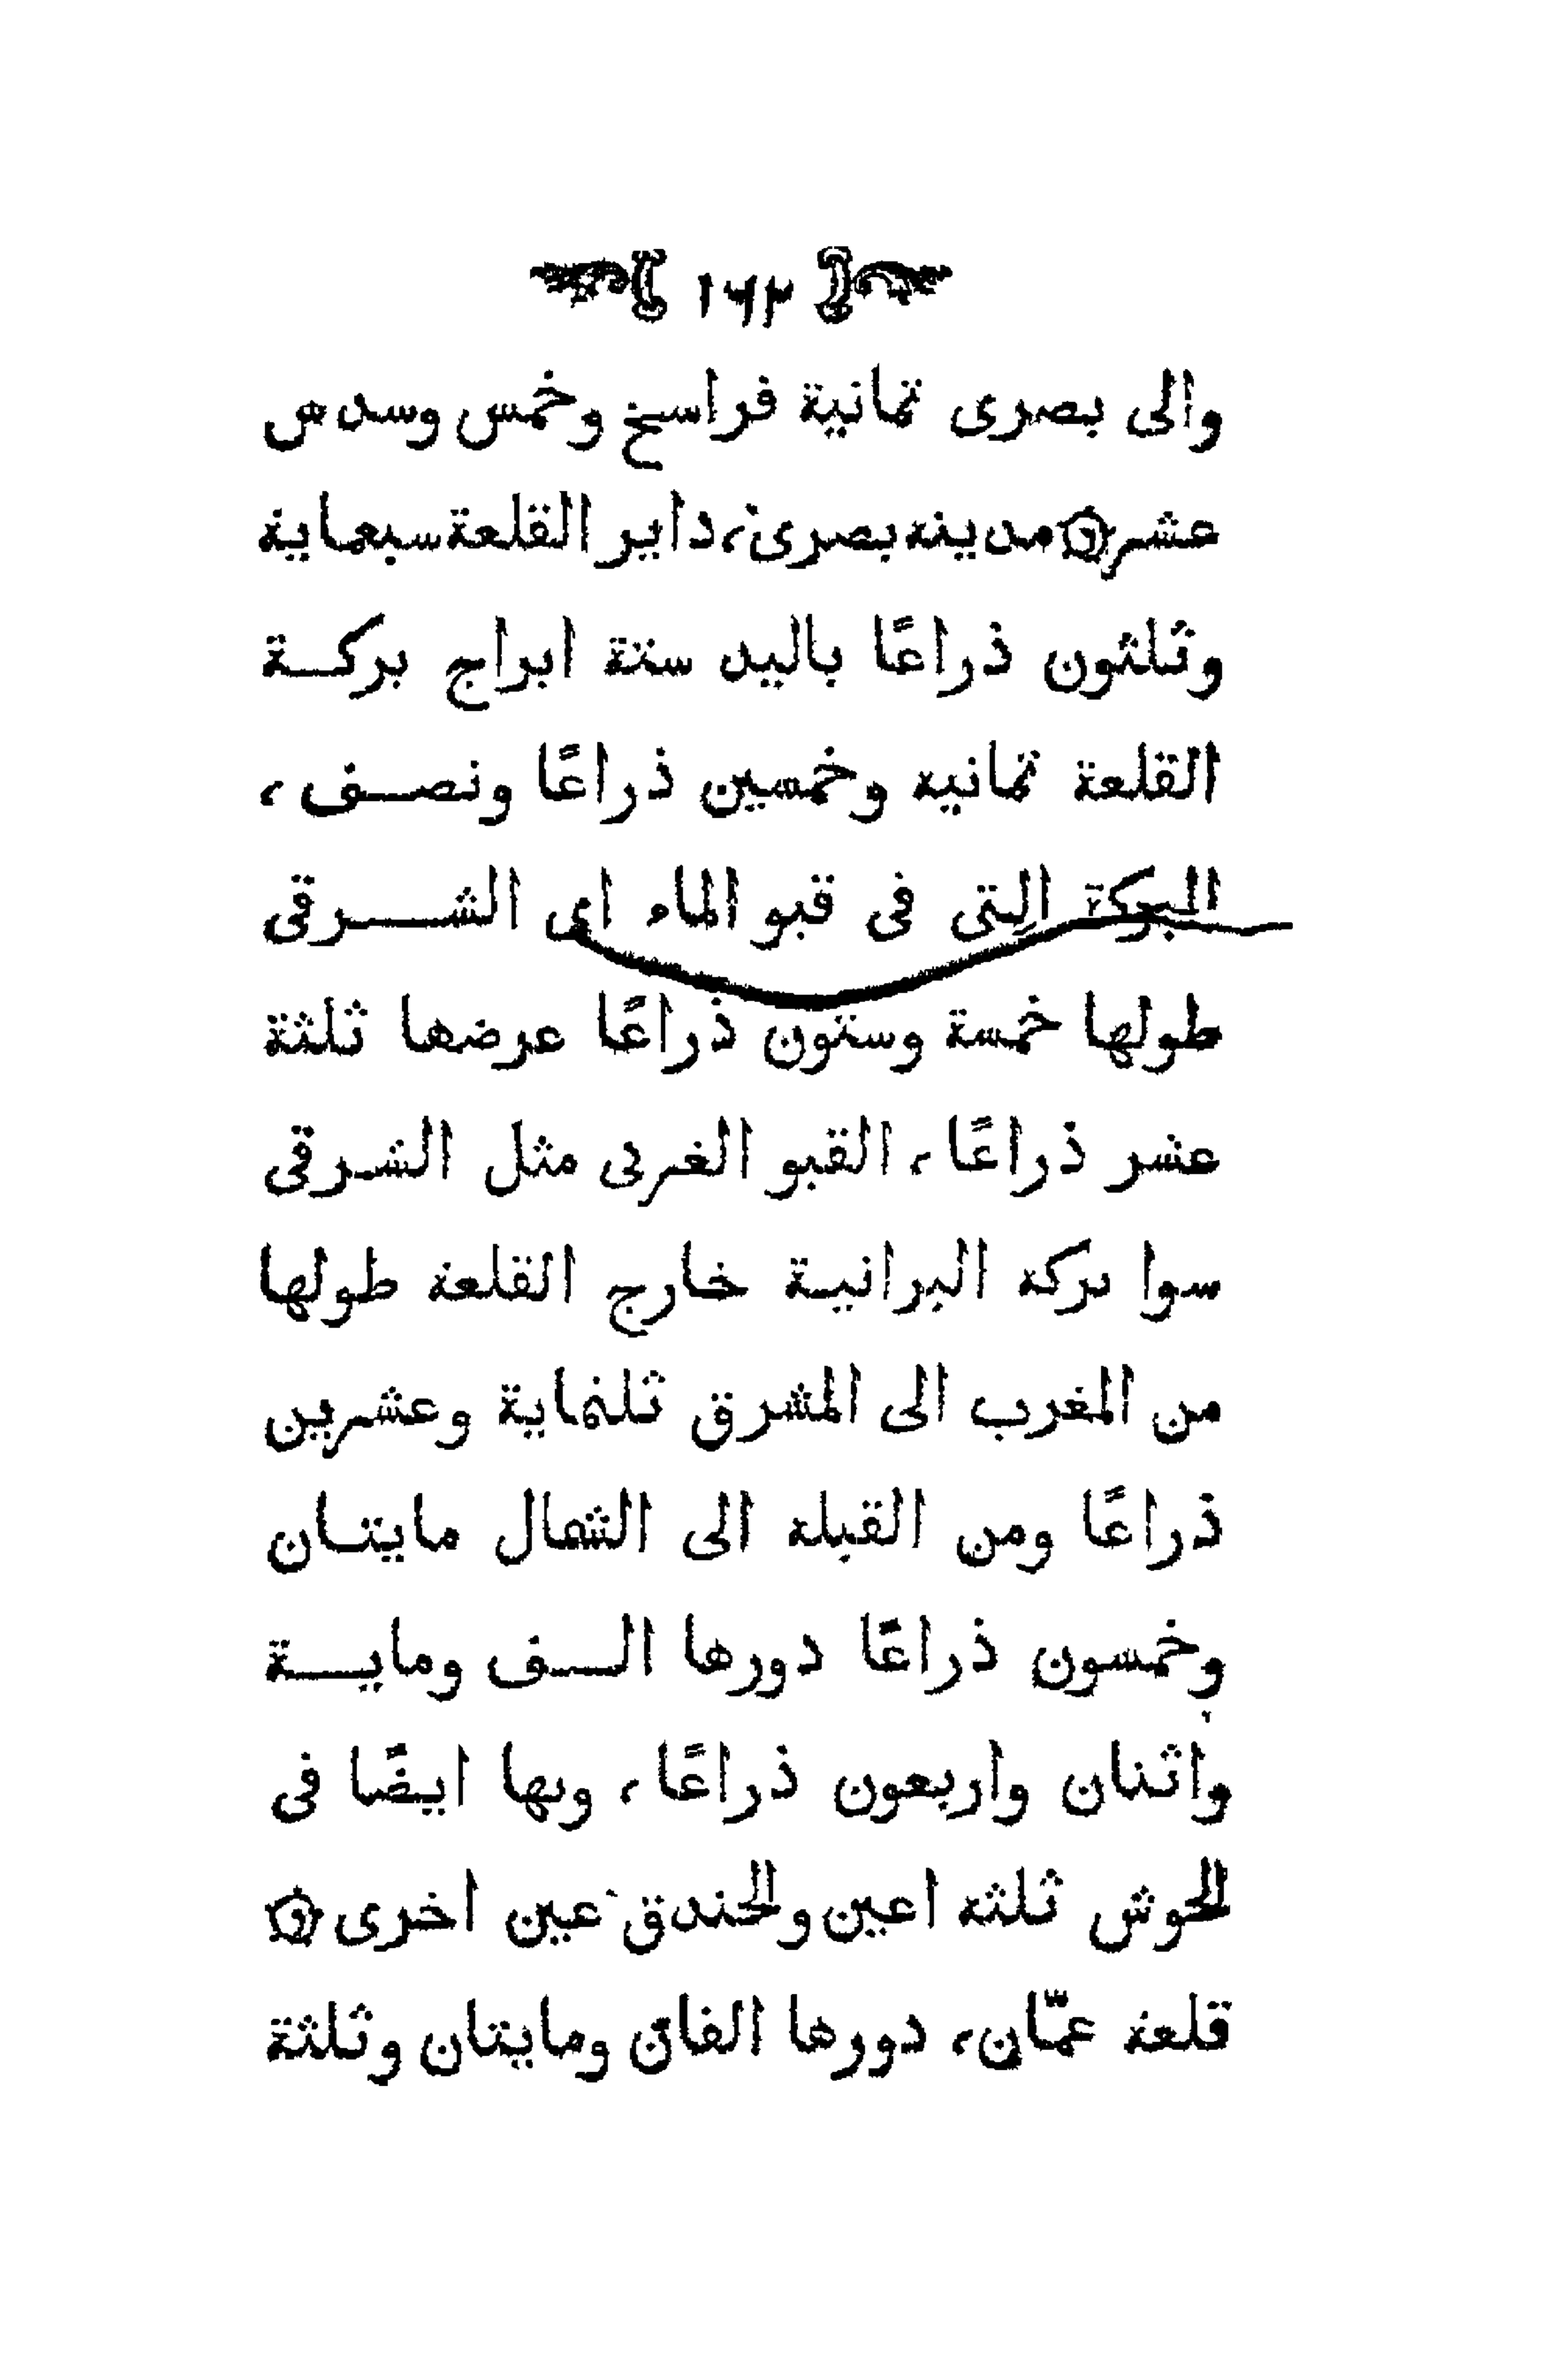 ١٦٢
والى بصرى ثمانية فراسخ وخمس وسدس
عشر مدينه بصرى، داير القلعة سبعماية
وثلثون ذراعًا باليد ستة ابراج بركة
القلعة ثمانيه وخمسين ذراعًا ونصف،
البركة التى فى قبو الماء اى الشرقى
طولها خمسة وستون ذراعًا عرضها ثلثة
عشر ذراعًا، القبو الغربى مثل الشرقى
سوا بركه البرانية خارج القلعة طولها
من المغرب الى المشرق ثلثماية وعشرين
ذراعًا ومن القبله الى الشمال مايتان
وخمسون ذراعًا دورها الف وماية
واثنان واربعون ذراعًا، وبها ايضًا فى
الحوش ثلثه اعين والخندق عين اخرى
قلعة عمّان، دورها الفان ومايتان وثلثة